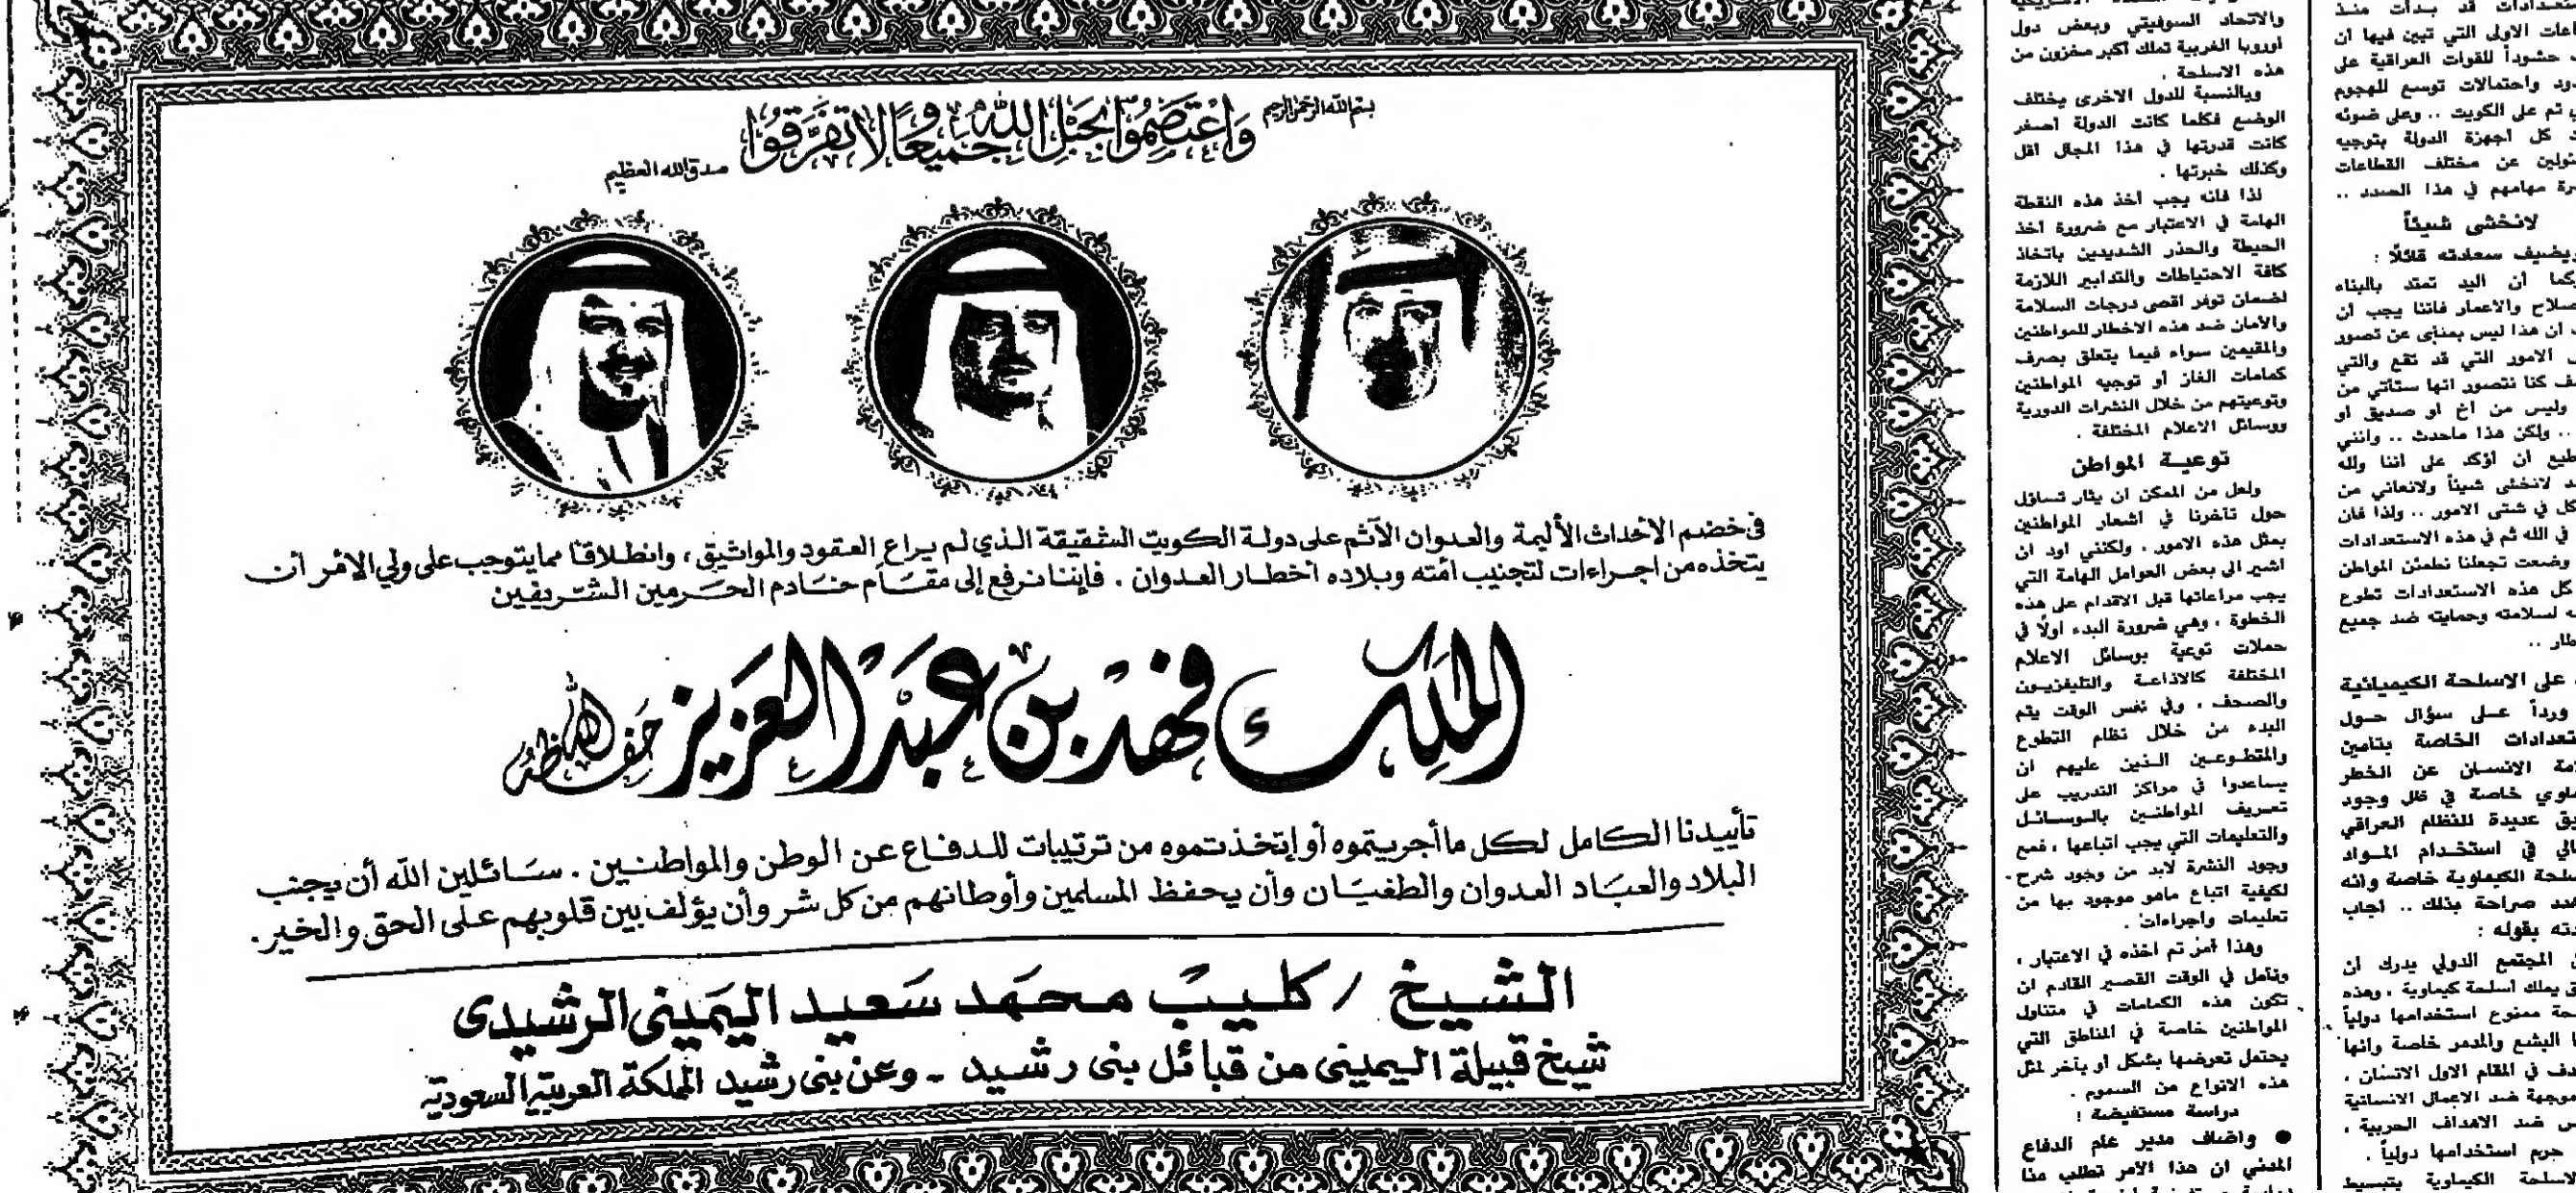 بسم الله الرحمن الرحيم
وَاعْتَصِمُوا بِحَبْلِ اللَّهِ جَمِيعًا وَلَا تَفَرَّقُوا
صدق الله العظيم
في خضم الأحداث الأليمة والعدوان الآثم على دولة الكويت الشقيقة الذي لم يراع العقود والمواثيق، وانطلاقًا مما يتوجب على ولي الأمر أن
يتخذه من اجراءات لتجنيب أمته وبلاده أخطار العدوان . فإننا نرفع إلى مقام خادم الحرمين الشريفين
الملك فهد بن عبد العزيز حفظه الله
تأييدنا الكامل لكل ما أجريتموه أو إتخذتموه من ترتيبات للدفاع عن الوطن والمواطنين . سائلين الله أن يجنب
البلاد والعباد العدوان والطغيان وأن يحفظ المسلمين وأوطانهم من كل شر وأن يؤلف بين قلوبهم على الحق والخير.
الشيخ / كليب محمد سعيد اليميني الرشيدي
شيخ قبيلة اليميني من قبائل بني رشيد - وعن بني رشيد المملكة العربية السعودية
والاتحاد السوفيتي وبعض دول
أوروبا الغربية تملك أكبر مخزون من
هذه الاسلحة .
وبالنسبة للدول الاخرى يختلف
الوضع فكلما كانت الدولة أصغر
كانت قدرتها في هذا المجال أقل
وكذلك خبرتها .
لذا فانه يجب أخذ هذه النقطة
الهامة في الاعتبار مع ضرورة أخذ
الحيطة والحذر الشديدين باتخاذ
كافة الاحتياطات والتدابير اللازمة
لضمان توفر اقصى درجات السلامة
والأمان ضد هذه الاخطار للمواطنين
والمقيمين سواء فيما يتعلق بصرف
كمامات الغاز أو توجيه المواطنين
وتوعيتهم من خلال النشرات الدورية
ووسائل الاعلام المختلفة .
توعية المواطن
ولعل من الممكن ان يثار تساؤل
حول تأخرنا في اشعار المواطنين
بمثل هذه الامور . ولكنني أود ان
اشير الى بعض العوامل الهامة التي
يجب مراعاتها قبل الاقدام على هذه
الخطوة ، وهي ضرورة البدء أولًا في
حملات توعية بوسائل الاعلام
المختلفة كالاذاعة والتليفزيون
والصحف ، وفي نفس الوقت يتم
البدء من خلال نظام التطوع
والمتطوعين الذين عليهم ان
يساعدوا في مراكز التدريب على
تعريف المواطنين بالوسائل
والتعليمات التي يجب اتباعها ، فمع
وجود النشرة لابد من وجود شرح
لكيفية اتباع ماهو موجود بها من
تعليمات واجراءات .
وهذا أمر تم أخذه في الاعتبار ،
ونأمل في الوقت القصير القادم ان
تكون هذه الكمامات في متناول
المواطنين خاصة في المناطق التي
يحتمل تعرضها بشكل أو بآخر لمثل
هذه الانواع من السموم .
دراسة مستفيضة !
● واضاف مدير عام الدفاع
المدني ان هذا الامر تطلب منا
قد بدأت منذ
الاولى التي تبين فيها أن
حشوداً للقوات العراقية على
واحتمالات توسع للهجوم
تم على الكويت .. وعلى ضوئه
كل أجهزة الدولة بتوجيه
عن مختلف القطاعات
مهامهم في هذا الصدد ..
لانخشى شيئاً
ويضيف سعادته قائلًا :
أن اليد تمتد بالبناء
والاعمار فاننا يجب أن
ان هذا ليس بمنأى عن تصور
الامور التي قد تقع والتي
كنا نتصور انها ستأتي من
وليس من أخ أو صديق أو
.. ولكن هذا ماحدث .. وانني
أن أؤكد على اننا ولله
لانخشى شيئاً ولانعاني من
في شتى الامور .. ولذا فان
في الله ثم في هذه الاستعدادات
وضعت تجعلنا نطمئن المواطن
كل هذه الاستعدادات تطوع
لسلامته وحمايته ضد جميع
على الاسلحة الكيميائية
ورداً على سؤال حول
الخاصة بتأمين
الانسان عن الخطر
خاصة في ظل وجود
عديدة للنظام العراقي
في استخدام المواد
الكيماوية خاصة وانه
صراحة بذلك .. أجاب
بقوله :
المجتمع الدولي يدرك ان
يملك اسلحة كيماوية ، وهذه
ممنوع استخدامها دولياً
البشع والمدمر خاصة وانها
في المقام الاول الانسان .
موجهة ضد الاعمال الانسانية
ضد الاهداف الحربية .
حرم استخدامها دولياً .
الكيماوية بتبسيط